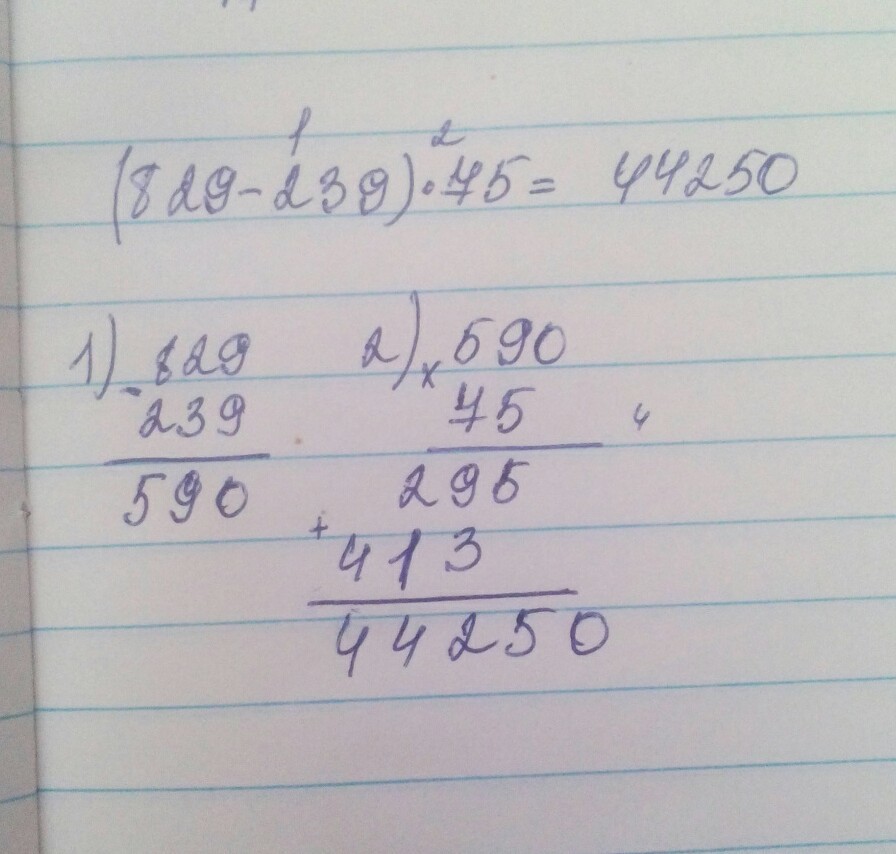 1 2
(829-239)·75= 44250
1) 829 2) 590
- ×
239 75
590 295
+
413
44250